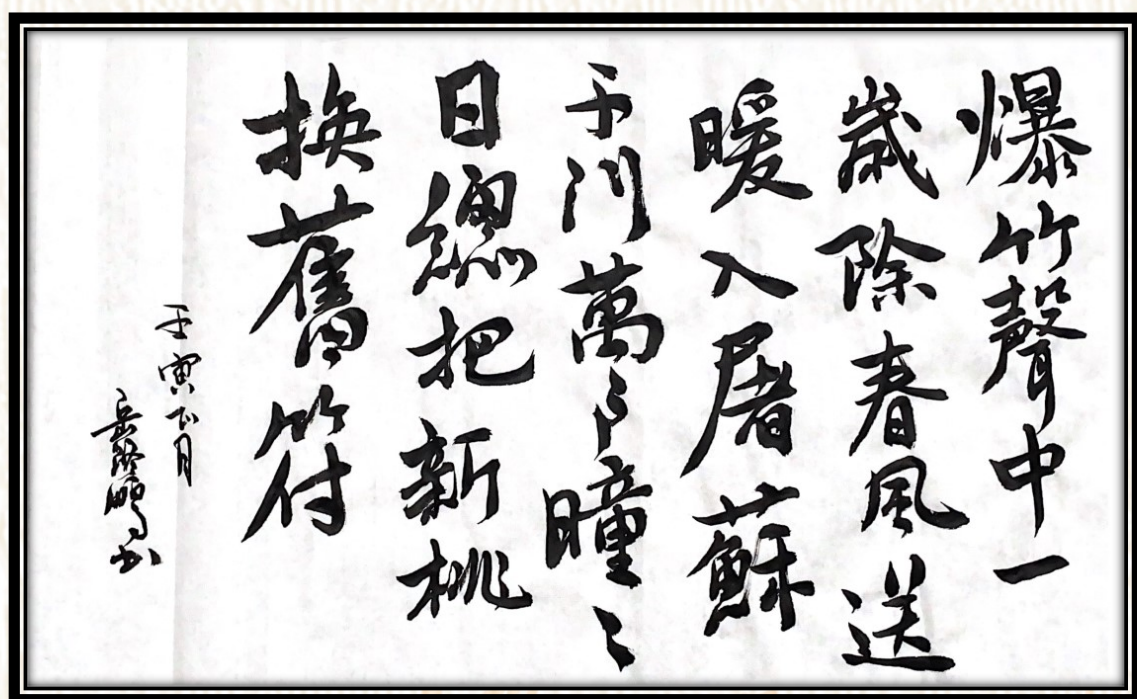 爆竹聲中一
歲除春風送
暖入屠蘇
千門萬戶曈〻
日總把新桃
換舊符
壬寅正月
岳鵬书